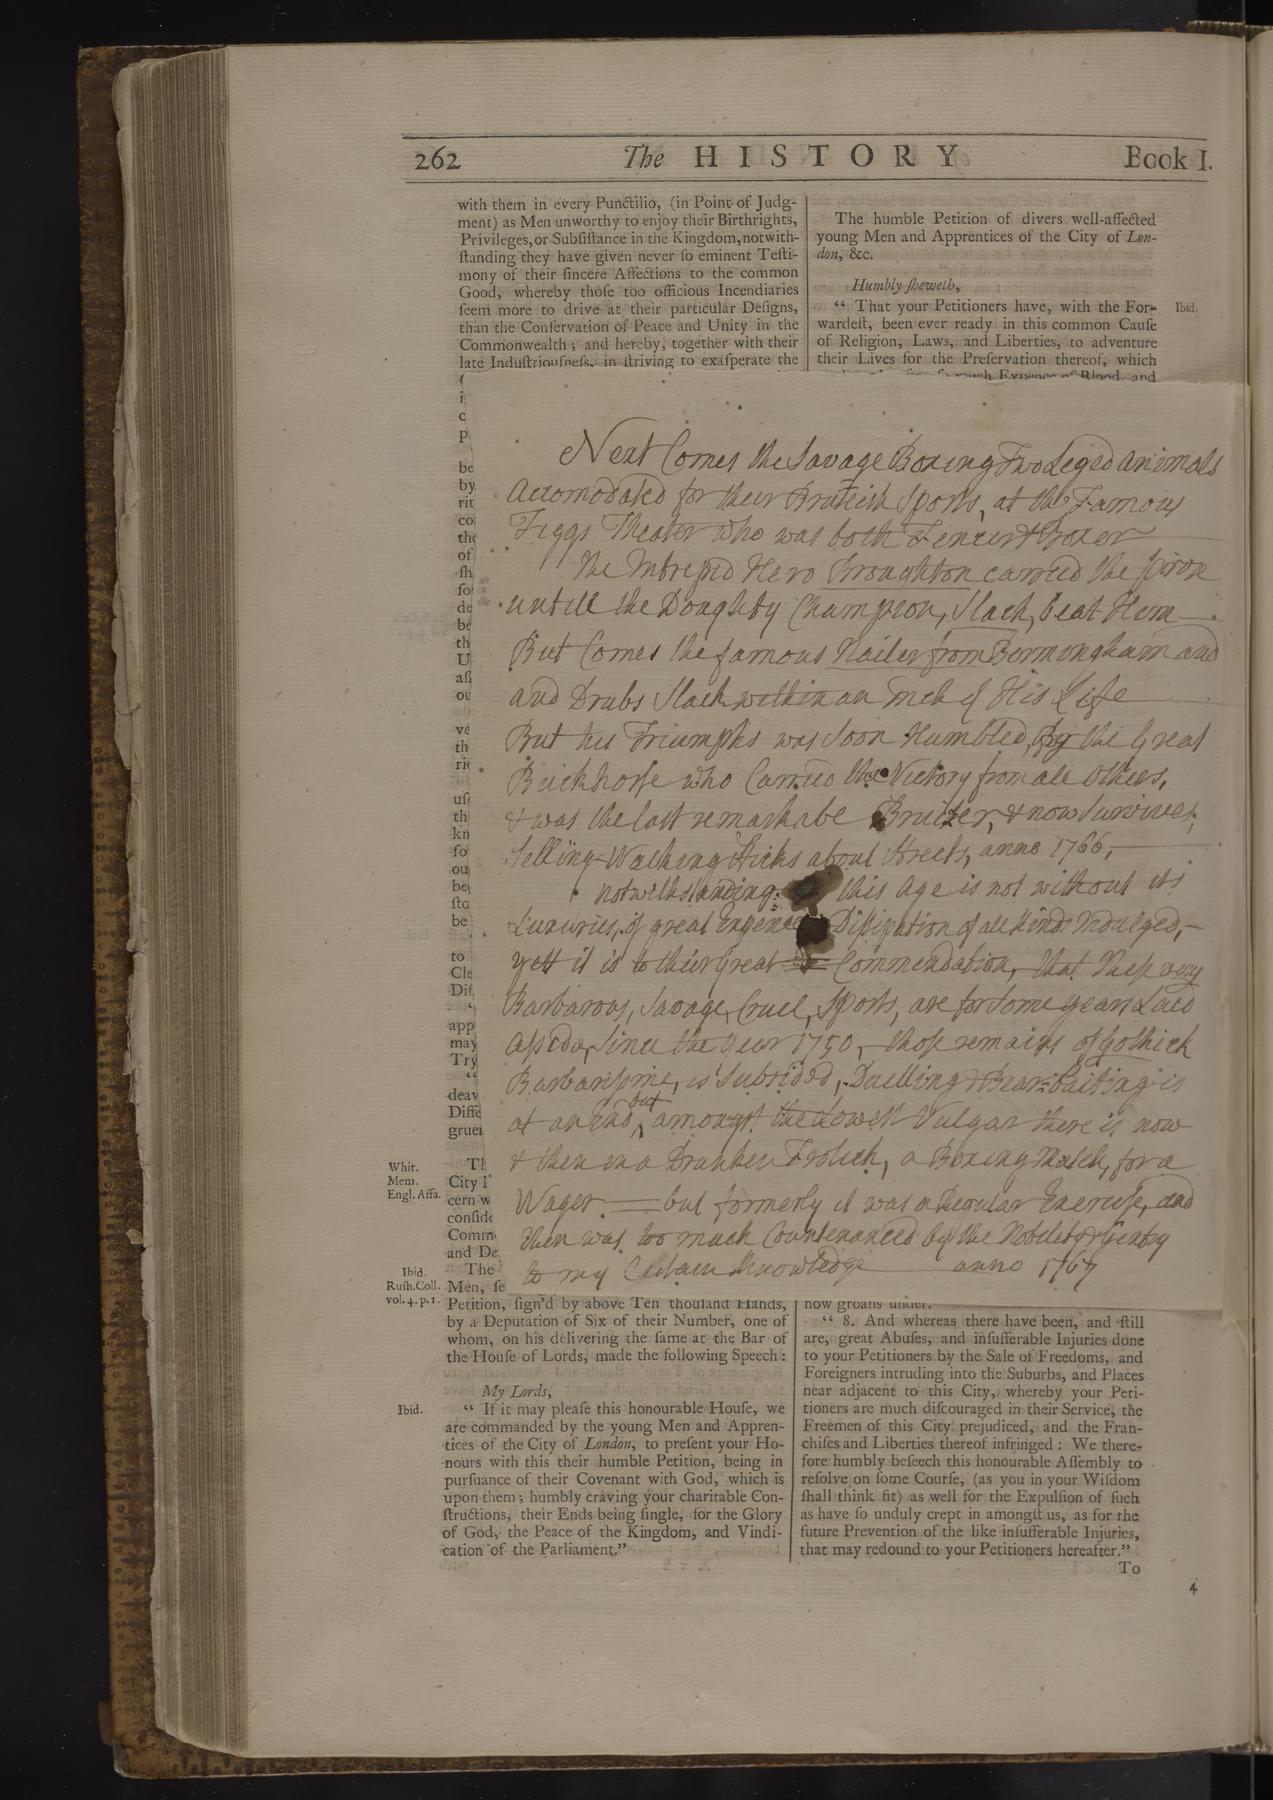 262 The HISTORY Book I.
with them in every Punctilio, (in Point of Judg-
ment) as Men unworthy to enjoy their Birthrights,
Privileges, or Subſiſtance in the Kingdom, notwith-
ſtanding they have given never ſo eminent Teſti-
mony of their ſincere Affections to the common
Good, whereby thoſe too officious Incendiaries
ſeem more to drive at their particular Deſigns,
than the Conſervation of Peace and Unity in the
Commonwealth; and hereby, together with their
late Induſtriouſneſs, in ſtriving to exaſperate the
The humble Petition of divers well-affected
young Men and Apprentices of the City of Lon-
don, &c.
Humbly ſheweth,
“ That your Petitioners have, with the For-
wardeſt, been ever ready in this common Cauſe
of Religion, Laws, and Liberties, to adventure
their Lives for the Preſervation thereof, which
Expence of Blood, and
Ibid.
Next Comes the Savage Boxing Two Leged Animals
Accomodated for their Bruteish Sports, at the Famous
Figgs Theater who was both Fencer & Boxer
The Intrepid Hero Broughton carried the prize
untill the Doughty Champion, Slack, beat Him
But Comes the famous Nailer from Bermingham and
and Drubs Slack within an Inch of His Life
But his Triumphs was soon Humbled, by the Great
Buckhorse who Carried the Victory from all others,
& was the last remarkabe Bruizer, & now survives,
Selling Walking Sticks about Streets, anno 1766,
notwithstanding this Age is not without its
Luxuries, of great Expence Dissipation of all kinds Indulged,
yett it is to their Great Commendation, that these very
Barbarous, Savage, Cruel, Sports, are for some years Laid
Asside, since the year 1750, those remains of Gothick
Barbarisme, is Subsided, Duelling & Bear-baiting is
at an End, but amongst the Lowest Vulgar there is now
& then in a Drunken Frolick, a Boxing Match, for a
Wager — but formerly it was a Regular Exercise, and
then was too much Countenanced by the Nobility & Gentry
to my Certain Knowledge anno 1767
be
by
rit
co
the
of
ſh
ſo
de
be
th
U
aſ
ou
ve
th
ri
uſ
th
kn
ſo
ou
be
ſto
be
to
Cle
Diſ
app
may
Try
“
deav
Diffe
grue
Th
City
cern w
conſide
Comm
and De
The
Whit.
Mem.
Engl. Affa.
Ibid.
Ruſh. Coll.
vol. 4. p. 1.
Men, ſe
Petition, ſign'd by above Ten thouſand Hands,
by a Deputation of Six of their Number, one of
whom, on his delivering the ſame at the Bar of
the Houſe of Lords, made the following Speech:
My Lords,
Ibid.
“ If it may pleaſe this honourable Houſe, we
are commanded by the young Men and Appren-
tices of the City of London, to preſent your Ho-
nours with this their humble Petition, being in
purſuance of their Covenant with God, which is
upon them; humbly craving your charitable Con-
ſtructions, their Ends being ſingle, for the Glory
of God, the Peace of the Kingdom, and Vindi-
cation of the Parliament.”
now groans under.
“ 8. And whereas there have been, and ſtill
are, great Abuſes, and inſufferable Injuries done
to your Petitioners by the Sale of Freedoms, and
Foreigners intruding into the Suburbs, and Places
near adjacent to this City, whereby your Peti-
tioners are much diſcouraged in their Service, the
Freemen of this City prejudiced, and the Fran-
chiſes and Liberties thereof infringed: We there-
fore humbly beſeech this honourable Aſſembly to
reſolve on ſome Courſe, (as you in your Wiſdom
ſhall think fit) as well for the Expulſion of ſuch
as have ſo unduly crept in amongſt us, as for the
future Prevention of the like inſufferable Injuries,
that may redound to your Petitioners hereafter.”
To
4